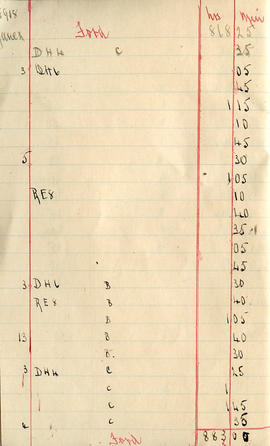 1918 hrs min
June Ford 868 25
DH4 C 35
3 DH6 05
45
1 15
10
45
5 30
1 05
RE8 10
40
35
05
45
3 DH6 B 30
RE8 B 40
B 1 05
13 B 40
B 30
3 DH4 C 25
C 1
C 1 45
4 C 35
Ford 883 00